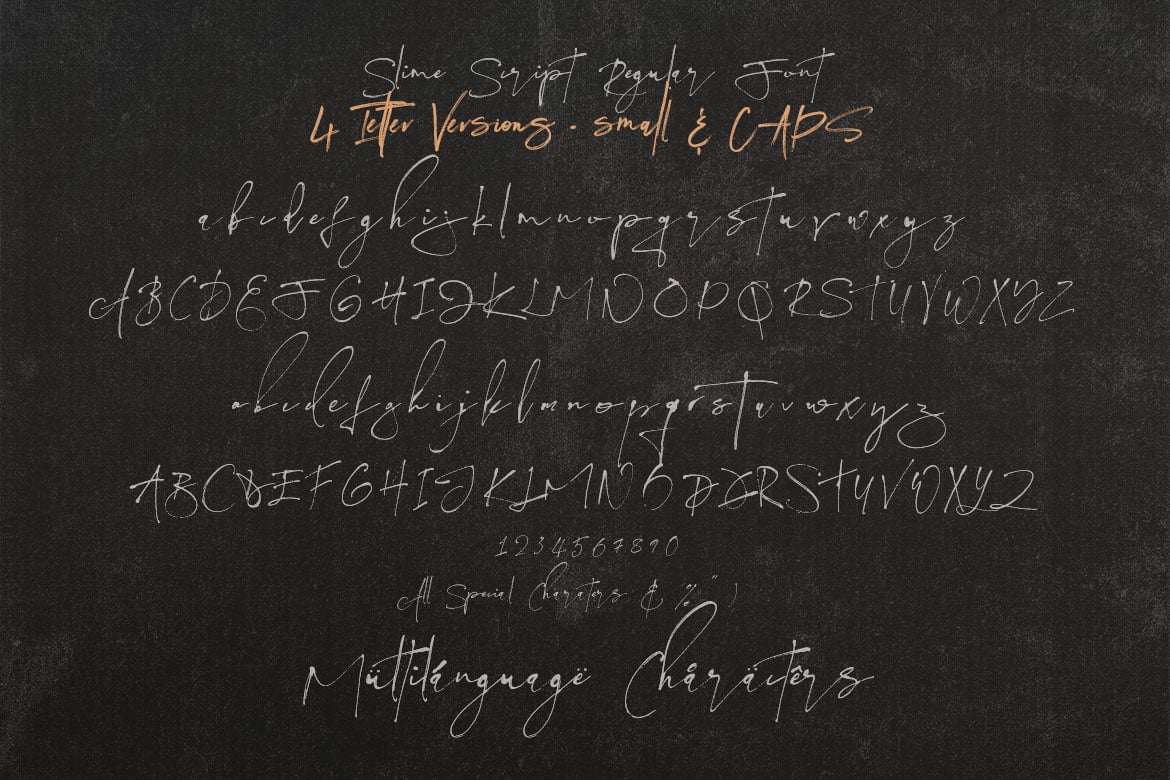 Slime Script Regular Font
4 letter Versions - small & CAPS
a b c d e f g h i j k l m n o p q r s t u v w x y z
A B C D E F G H I J K L M N O P Q R S T U V W X Y Z
a b c d e f g h i j k l m n o p q r s t u v w x y z
A B C D E F G H I J K L M N O P Q R S T U V W X Y Z
1 2 3 4 5 6 7 8 9 0
All Special Charaters & % " )
Mültilánguagë Chåräctêrs